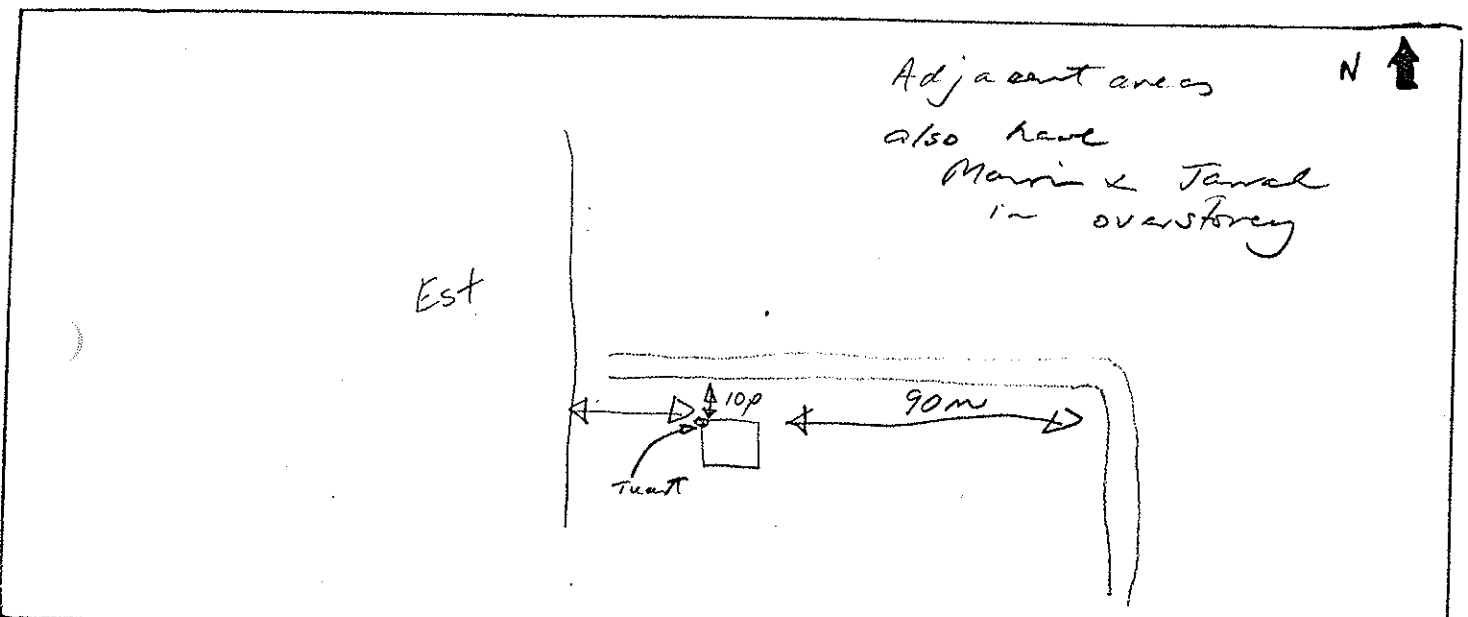 N
Adjacent areas
also have
Marri & Jarrah
in overstorey
Est
10p
90m
Tuart